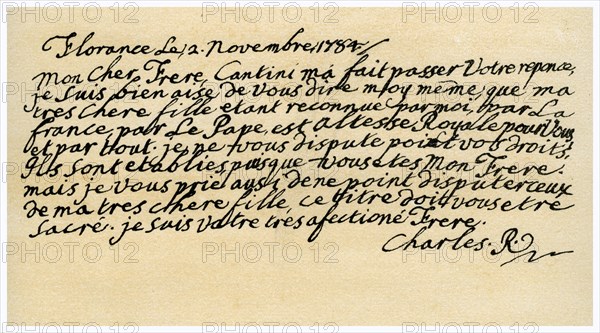 Florance Le, 2. Novembre, 1784
Mon Cher Frere, Cantini m'a fait passer Votre reponce,
je suis bien aise de vous dire moy même, que ma
tres chere fille etant reconnue par moi, par La
france, par Le Pape, est Altesse Royale pour Vous
et par tout. je ne vous dispute point vos droits,
Ils sont etablies, puisque vous etes Mon Frere.
mais je vous prie aussi de ne point disputer ceux
de ma tres chere fille, ce titre doit vous etre
sacré. je suis Votre tres afectioné Frere.
Charles. R.